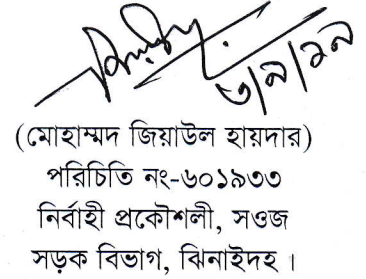 ৩/৯/১৯
(মোহাম্মদ জিয়াউল হায়দার)
পরিচিতি নং-৬০১৯৩৩
নির্বাহী প্রকৌশলী, সওজ
সড়ক বিভাগ, ঝিনাইদহ।